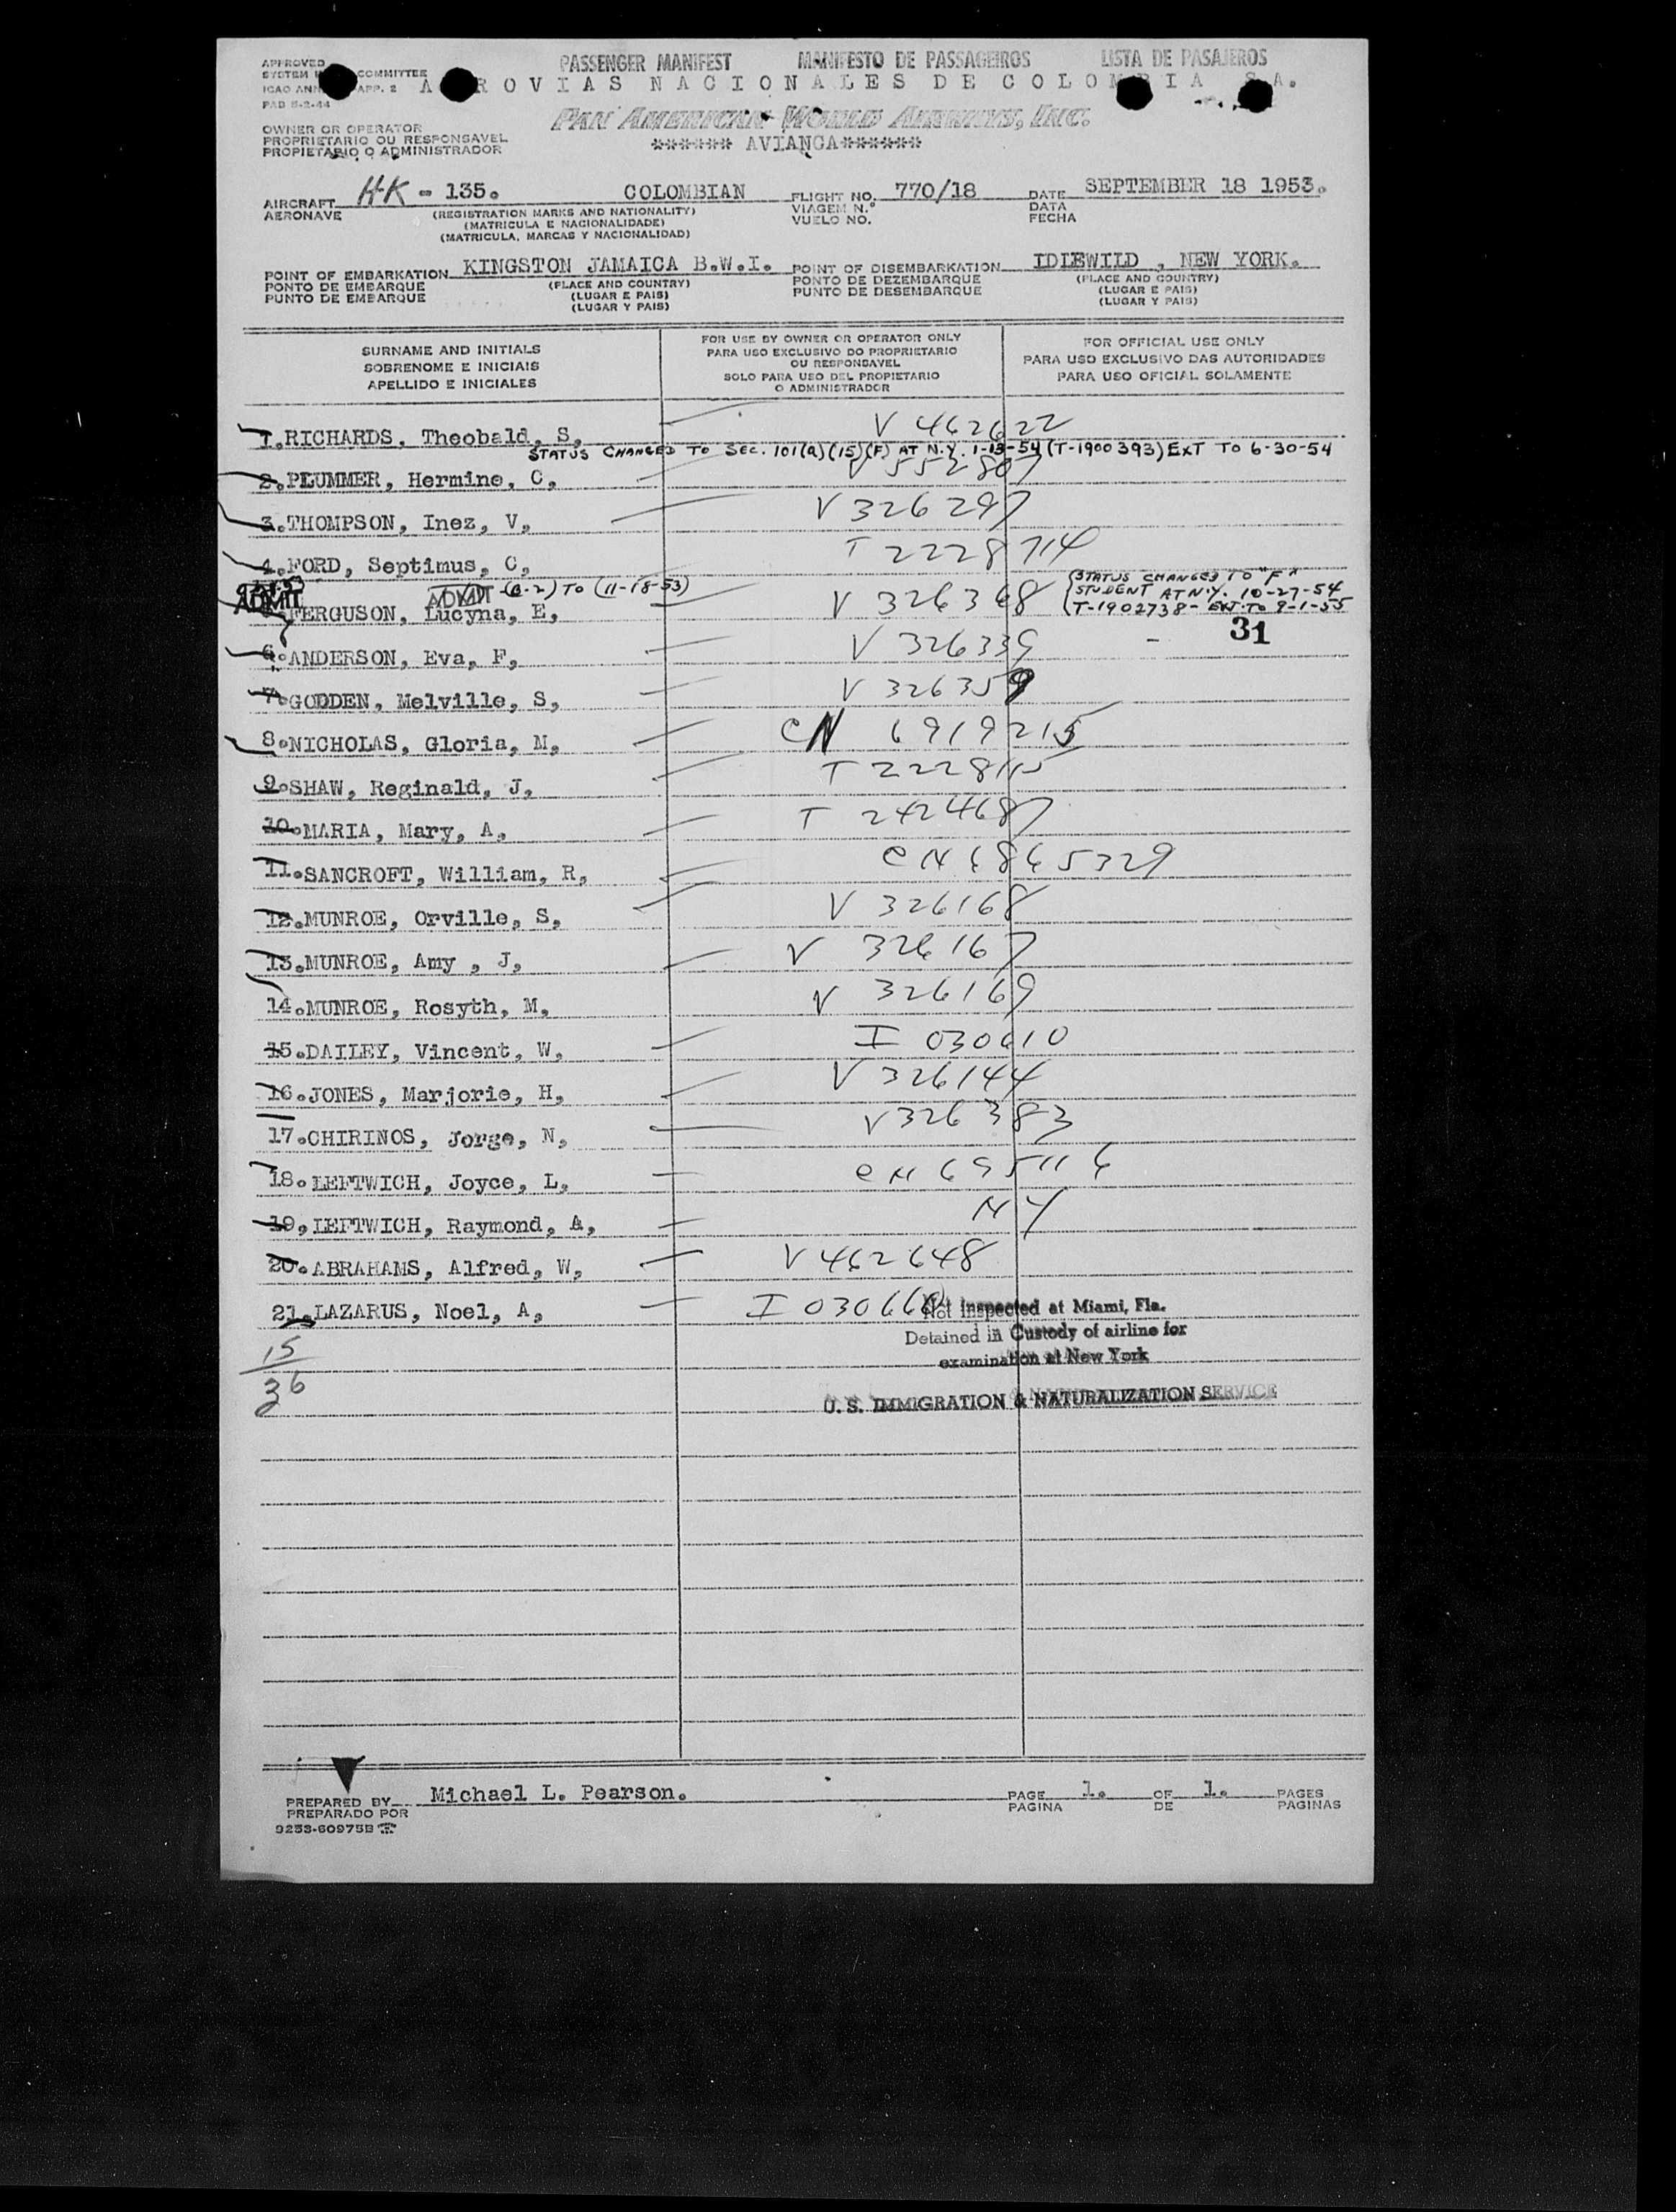 PASSENGER MANIFEST MANIFESTO DE PASSAGEIROS LISTA DE PASAJEROS
APPROVED
SYSTEM COMMITTEE
ICAO ANN APP. 2
PAD 8-2-44
A ROVIAS NACIONALES DE COLO BIA S.A.
PAN AMERICAN WORLD AIRWAYS, INC.
OWNER OR OPERATOR
PROPRIETARIO OU RESPONSAVEL
PROPIETARIO O ADMINISTRADOR
****** AVIANCA******
AIRCRAFT HK - 135. COLOMBIAN FLIGHT NO. 770/18 DATE SEPTEMBER 18 1953.
AERONAVE (REGISTRATION MARKS AND NATIONALITY) VIAGEM N.° DATA
(MATRICULA E NACIONALIDADE) VUELO NO. FECHA
(MATRICULA, MARCAS Y NACIONALIDAD)
POINT OF EMBARKATION KINGSTON JAMAICA B.W.I. POINT OF DISEMBARKATION IDLEWILD , NEW YORK.
PONTO DE EMBARQUE (PLACE AND COUNTRY) PONTO DE DEZEMBARQUE (PLACE AND COUNTRY)
PUNTO DE EMBARQUE (LUGAR E PAIS) PUNTO DE DESEMBARQUE (LUGAR E PAIS)
(LUGAR Y PAIS) (LUGAR Y PAIS)
SURNAME AND INITIALS
SOBRENOME E INICIAIS
APELLIDO E INICIALES
FOR USE BY OWNER OR OPERATOR ONLY
PARA USO EXCLUSIVO DO PROPRIETARIO
OU RESPONSAVEL
SOLO PARA USO DEL PROPIETARIO
O ADMINISTRADOR
FOR OFFICIAL USE ONLY
PARA USO EXCLUSIVO DAS AUTORIDADES
PARA USO OFICIAL SOLAMENTE
1.RICHARDS, Theobald, S, V 462622
STATUS CHANGED TO SEC. 101(a)(15)(F) AT N.Y. 1-13-54 (T-1900393) EXT TO 6-30-54
2.PLUMMER, Hermine, C, V 552807
3.THOMPSON, Inez, V, V 326297
4.FORD, Septimus, C, T 2228714
ADMIT ADMIT (B-2) TO (11-18-53)
FERGUSON, Lucyna, E, V 326368
STATUS CHANGED TO "F"
STUDENT AT N.Y. 10-27-54
T-1902738- EXT. TO 9-1-55
31
6.ANDERSON, Eva, F, V 326339
7.GODDEN, Melville, S, V 326359
8.NICHOLAS, Gloria, M, CN 6919215
9.SHAW, Reginald, J, T 2228115
10.MARIA, Mary, A, T 2424687
11.SANCROFT, William, R, CN 6865329
12.MUNROE, Orville, S, V 326168
13.MUNROE, Amy , J, V 326167
14.MUNROE, Rosyth, M, V 326169
15.DAILEY, Vincent, W, I 030610
16.JONES, Marjorie, H, V 326144
17.CHIRINOS, Jorge, N, V326383
18.LEFTWICH, Joyce, L, CN 695116
19,LEFTWICH, Raymond, A, NY
20.ABRAHAMS, Alfred, W, V 462648
21.LAZARUS, Noel, A, I 030660
Not Inspected at Miami, Fla.
Detained in Custody of airline for
examination at New York
15
36
U. S. IMMIGRATION & NATURALIZATION SERVICE
PREPARED BY Michael L. Pearson. PAGE 1. OF 1. PAGES
PREPARADO POR PAGINA DE PAGINAS
9253-60975B